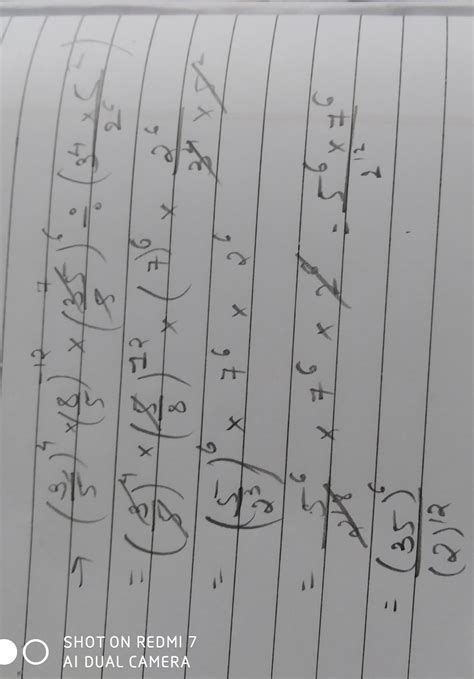 → (3/5)^4 × (8/5)^-12 × (35/8)^6 ÷ (3^4 × 5^2 / 2^6) 7
= (3/5)^4 × (5/8)^12 × (7)^6 × 2^6 / 3^4 × 5^2
= (5/2^3)^6 × 7^6 × 2^6
= 5^6 / 2^18 × 7^6 × 2^6 = 5^6 × 7^6 / 2^12
= (35)^6 / (2)^12
SHOT ON REDMI 7
AI DUAL CAMERA